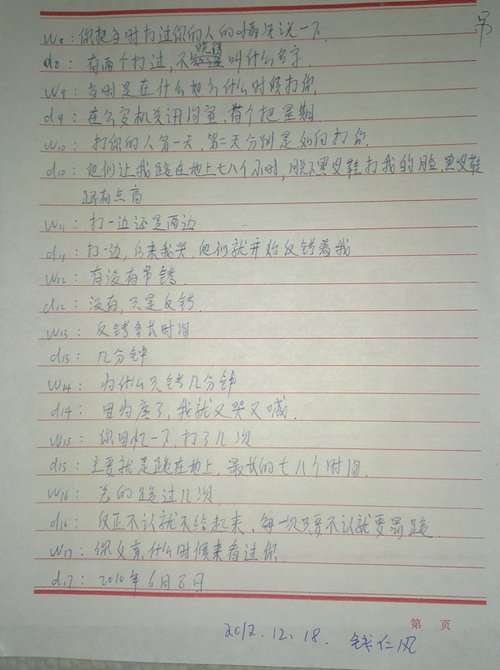 w8：你把当时打过你的人的情况说一下
d8：有两个打过，不晓得叫什么名字
w9：当时是在什么地方什么时候打你
d9：在公安机关讯问室，有个把星期
w10：打你的人第一天，第二天分别是如何打你
d10：他们让我跪在地上七八个小时，脱下鞋打我的脸，鞋
还有点高
w11：打一边还是两边
d11：打一边，后来我哭，他们就开始反铐着我
w12：有没有吊铐
d12：没有，只是反铐
w13：反铐多长时间
d13：几分钟
w14：为什么只铐几分钟
d14：因为疼了，我就又哭又喊
w15：你回忆一下，打了几次
d15：主要就是跪在地上，最长的七八个时间
w16：总的跪过几次
d16：反正不认就不给起来，每一次不认就要跪
w17：你父亲什么时候来看过你
d17：2010年6月8日
2012.12.18. 钱仁风
第 页